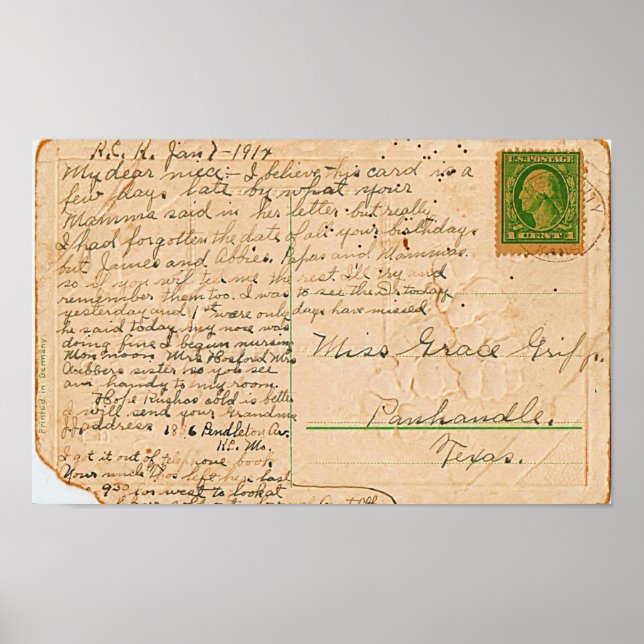 K.C. K. Jan 7-1914
My dear niece:- I believe this card is a
few days late by what your
Mamma said in her letter but really
I had forgotten the date of all your birthdays
but James and Abbies, Papas and Mammas.
so if you will tell me the rest I'll try and
remember them too. I was to see the Dr today
yesterday and 1st were only days have missed
he said today my nose was
doing fine I begun nursin
Mon noon Mrs Hosford Mrs
Webbers sister so you see
am handy to my room.
Hope Rughas cold is better
I will send your Grandma
address 18 6 Pendleton Av.
K.C. Mo.
I got it out of telephone book
Your uncle Thos left here last
9 30 for west to look at
U.S. POSTAGE
1 CENT 1
CITY
Miss Grace Griff
Panhandle.
Texas.
Printed in Germany